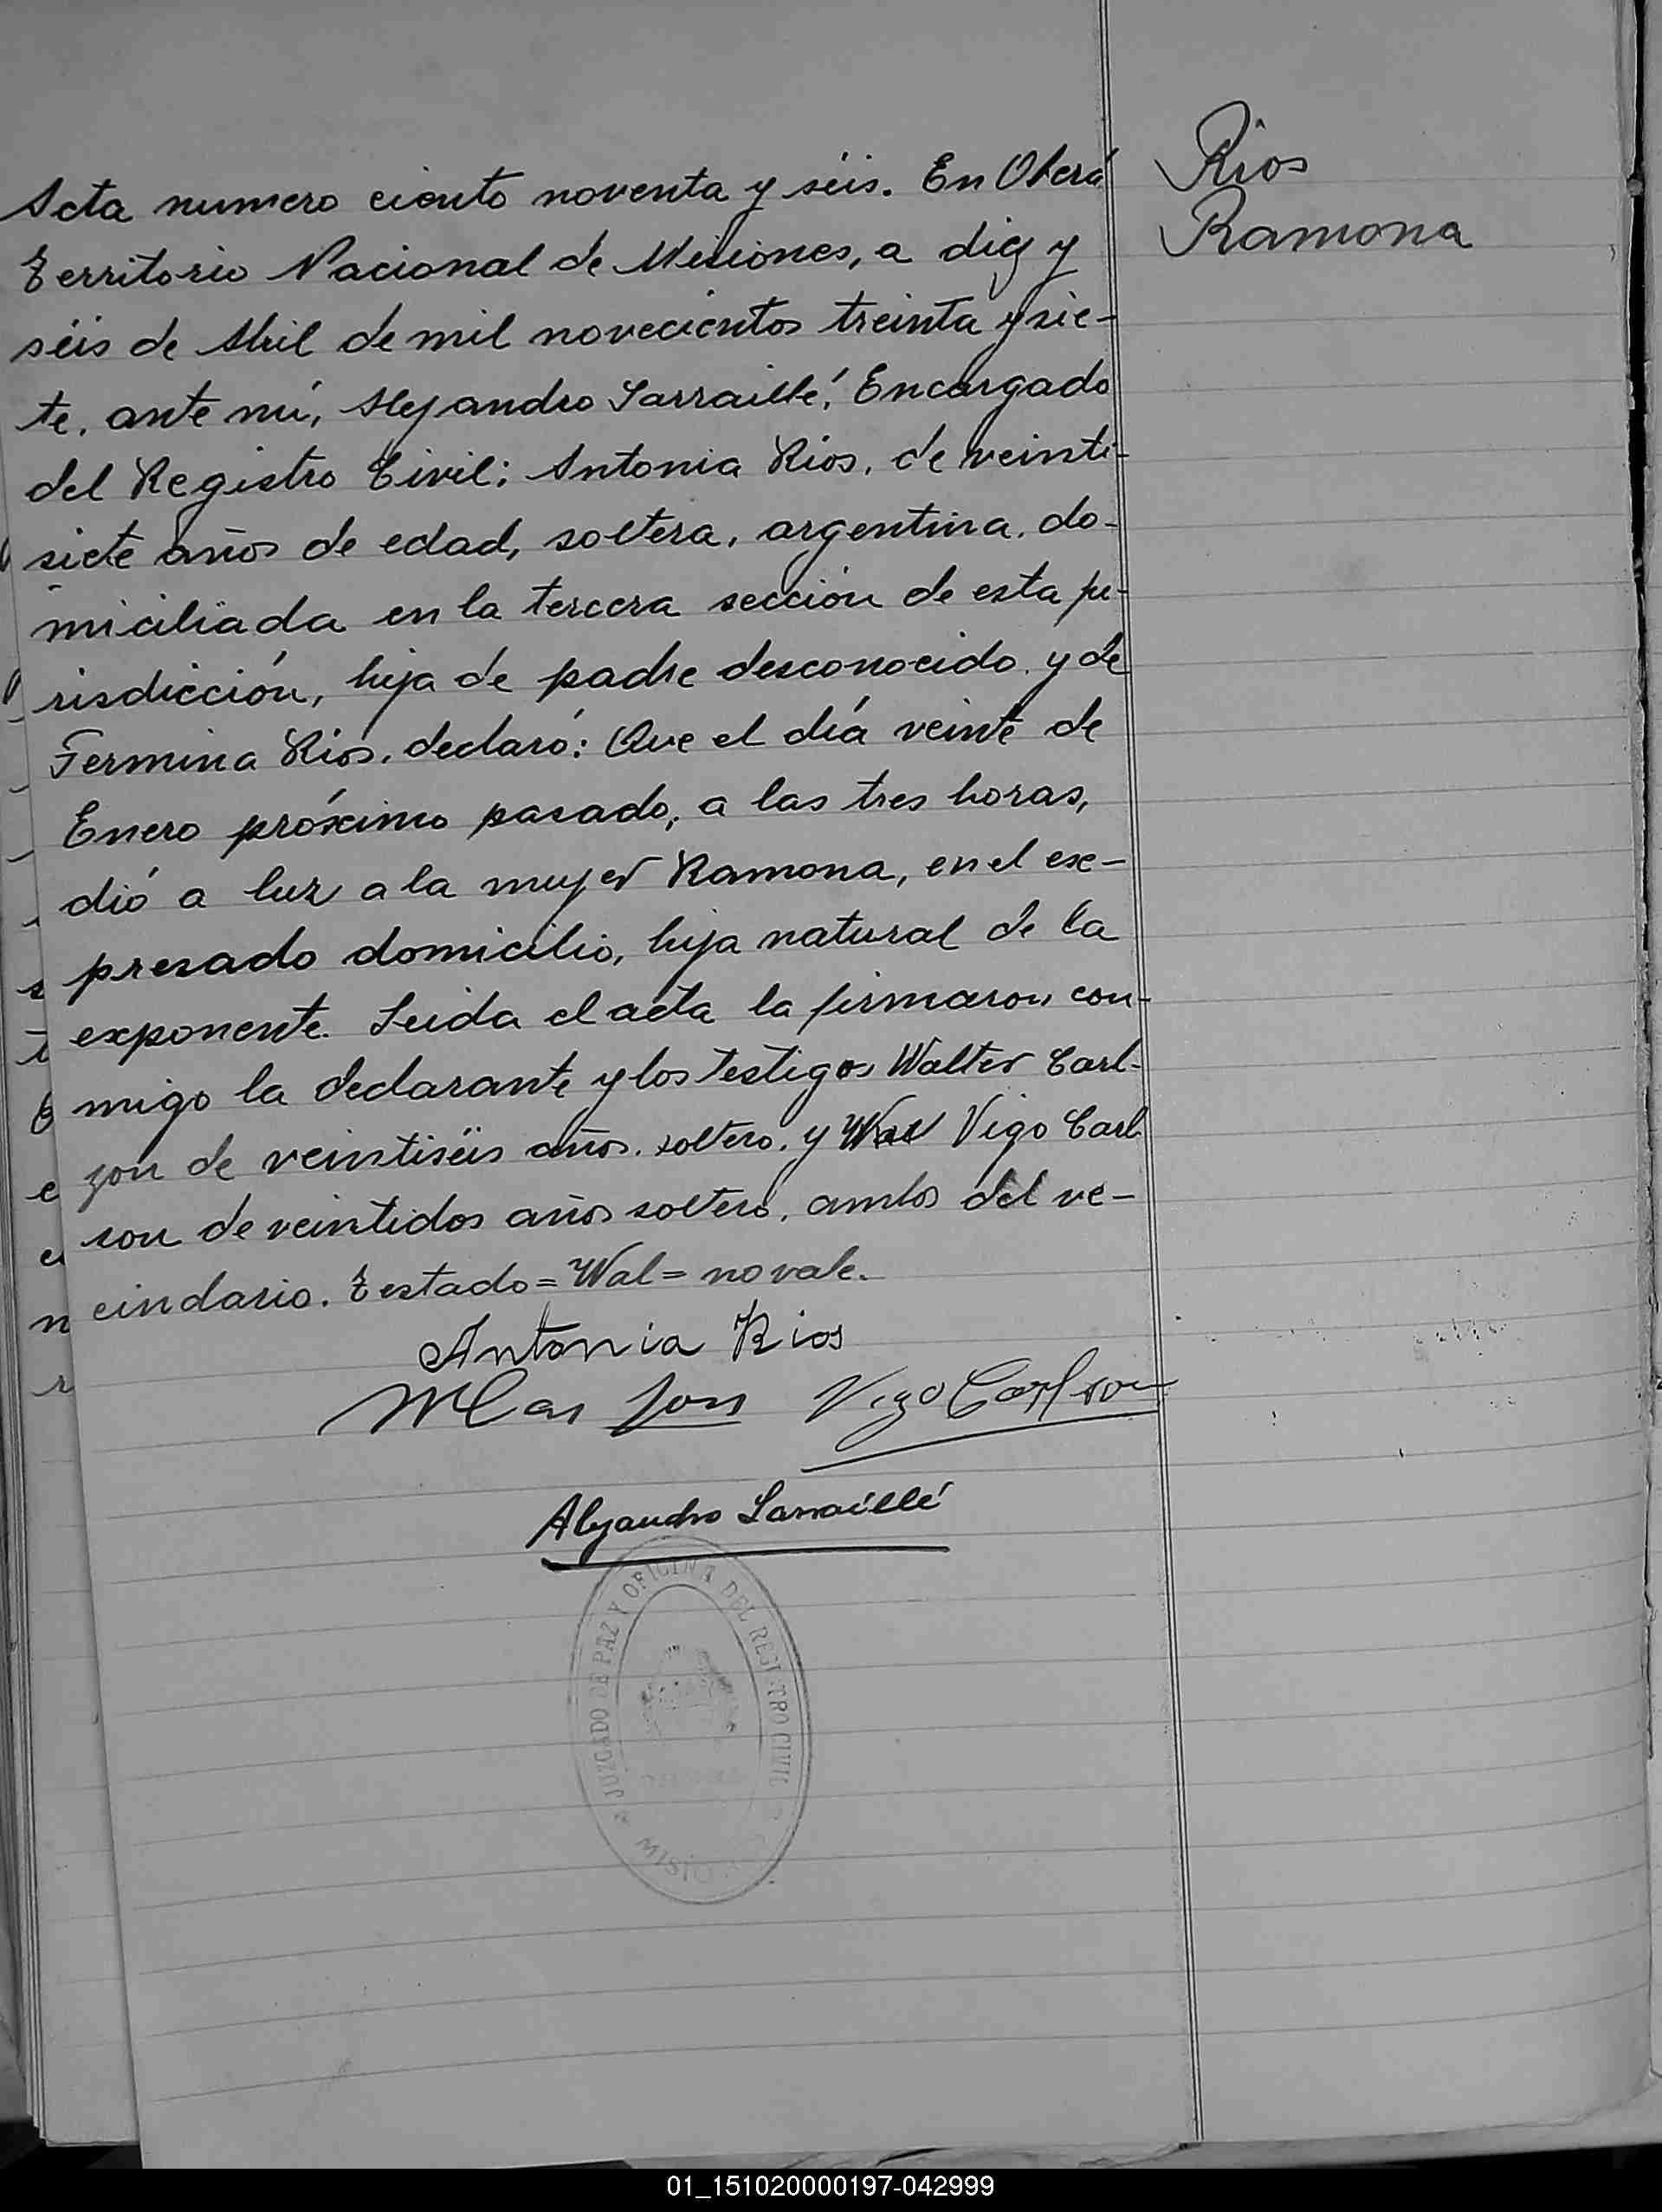 Acta numero ciento noventa y séis. En Oberá
Territorio Nacional de Misiones, a diez y
séis de Abril de mil novecientos treinta y sie-
te, ante mí, Alejandro Sarraillé, Encargado
del Registro Civil; Antonia Rios, de veinti-
siete años de edad, soltera, argentina, do-
miciliada en la tercera sección de esta ju-
risdicción, hija de padre desconocido y de
Fermina Rios, declaró: Que el día veinte de
Enero próximo pasado, a las tres horas,
dió a luz a la mujer Ramona, en el ex-
presado domicilio, hija natural de la
exponente. Leida el acta la firmaron con-
migo la declarante y los testigos Walter Carl-
zon de veintiséis años, soltero, y Wal Vigo Carl
son de veintidos años soltero, ambos del ve-
cindario. Testado=Wal=no vale.
Antonia Rios
WCarlson Vigo Carlson
Alejandro Sarraillé
JUZGADO DE PAZ Y OFICINA DEL REGISTRO CIVIL
MISIONES
Rios
Ramona
01_151020000197-042999